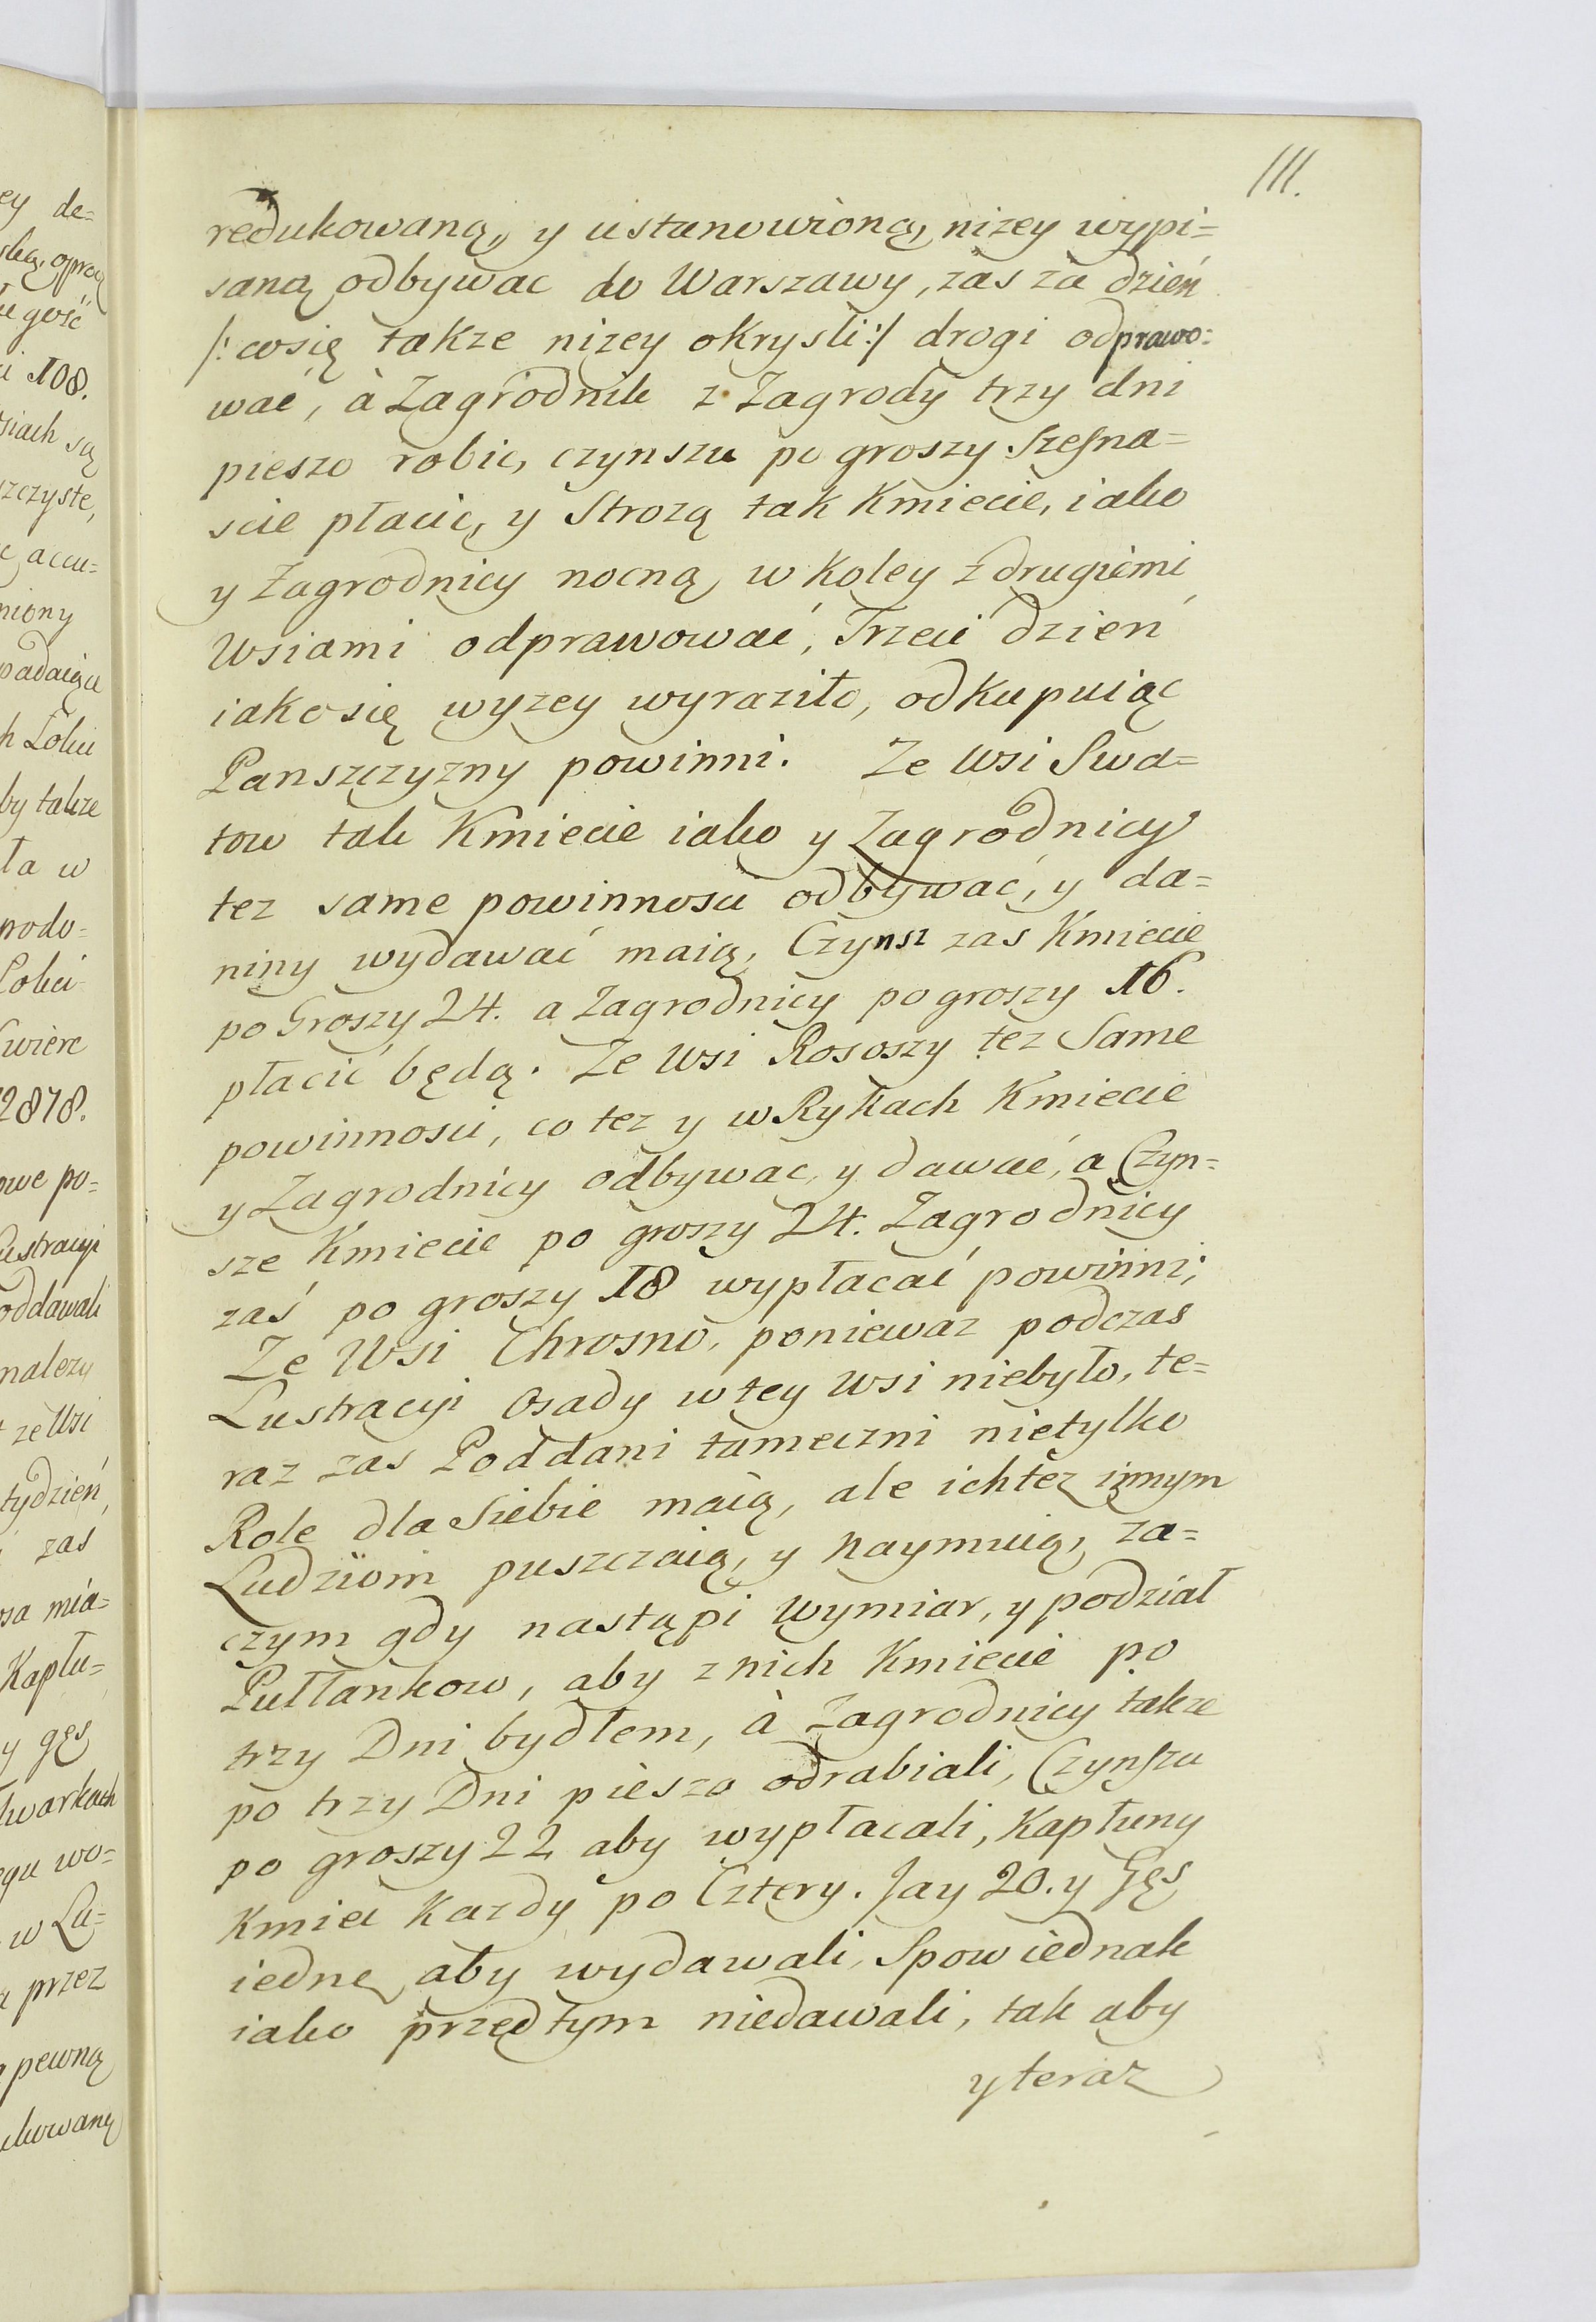 111.
redukowaną, y ustanowioną, niżey wypi=
saną odbywac do Warszawy, zas za dzień
/: cosię takze nizey okrysli :/ drogi odprawo=
wać, à Zagrodnik z Zagrody trzy dni
pieszo robic, czynszu po groszy Szesna=
scie płacic, y Strozą tak Kmiecie, iako
y Zagrodnicy nocną, w Koley z drugiemi
Wsiami odprawować, Trzeci dzień
iakosię wyzey wyraziło, odkupuiąc
Panszczyzny powinni. Ze Wsi Swa=
tow tak Kmiecie iako y Zagrodnicy
tez same powinnosci odbywać, y da=
niny wydawać maią, Czynsz zas Kmiecie
po Groszy 24. a Zagrodnicy po groszy 16.
płacić będą. Ze Wsi Rososzy tez Same
powinnosci, co tez y w Rykach Kmiecie
y Zagrodnicy odbywac, y dawać, a Czyn=
sze Kmiecie po groszy 24. Zagrodnicy
zaś po groszy 18 wypłacać powinni;
Ze Wsi Chrosno, poniewaz podczas
Lustracyi Osady w tey Wsi niebyło, te=
raz zas Poddani tameczni nietylko
Role dla Siebie maią, ale ich tez innym
Ludziom puszczaią, y naymuią, za=
czym gdy nastąpi Wymiar, y podział
Pułłankow, aby z nich Kmiecie po
trzy Dni bydłem, à Zagrodnicy takze
po trzy Dni pieszo odrabiali, Czynszu
po groszy 22 aby wypłacali, Kapłuny
Kmieć Kazdy po Cztery. Jay 20. y Gęs
iednę aby wydawali, Spow iednak
iako przedtym niedawali, tak aby
y teraz
ey de=
gość
108.
siach są
szczyste,
accu=
niony
by takze
ła w
12878.
owe po=
Lustracyi
oddawali
nalezy
ze Wsi
tydzień,
zas
mia=
Kapłu=
y gęs
wo=
w Lu=
przez
pewną